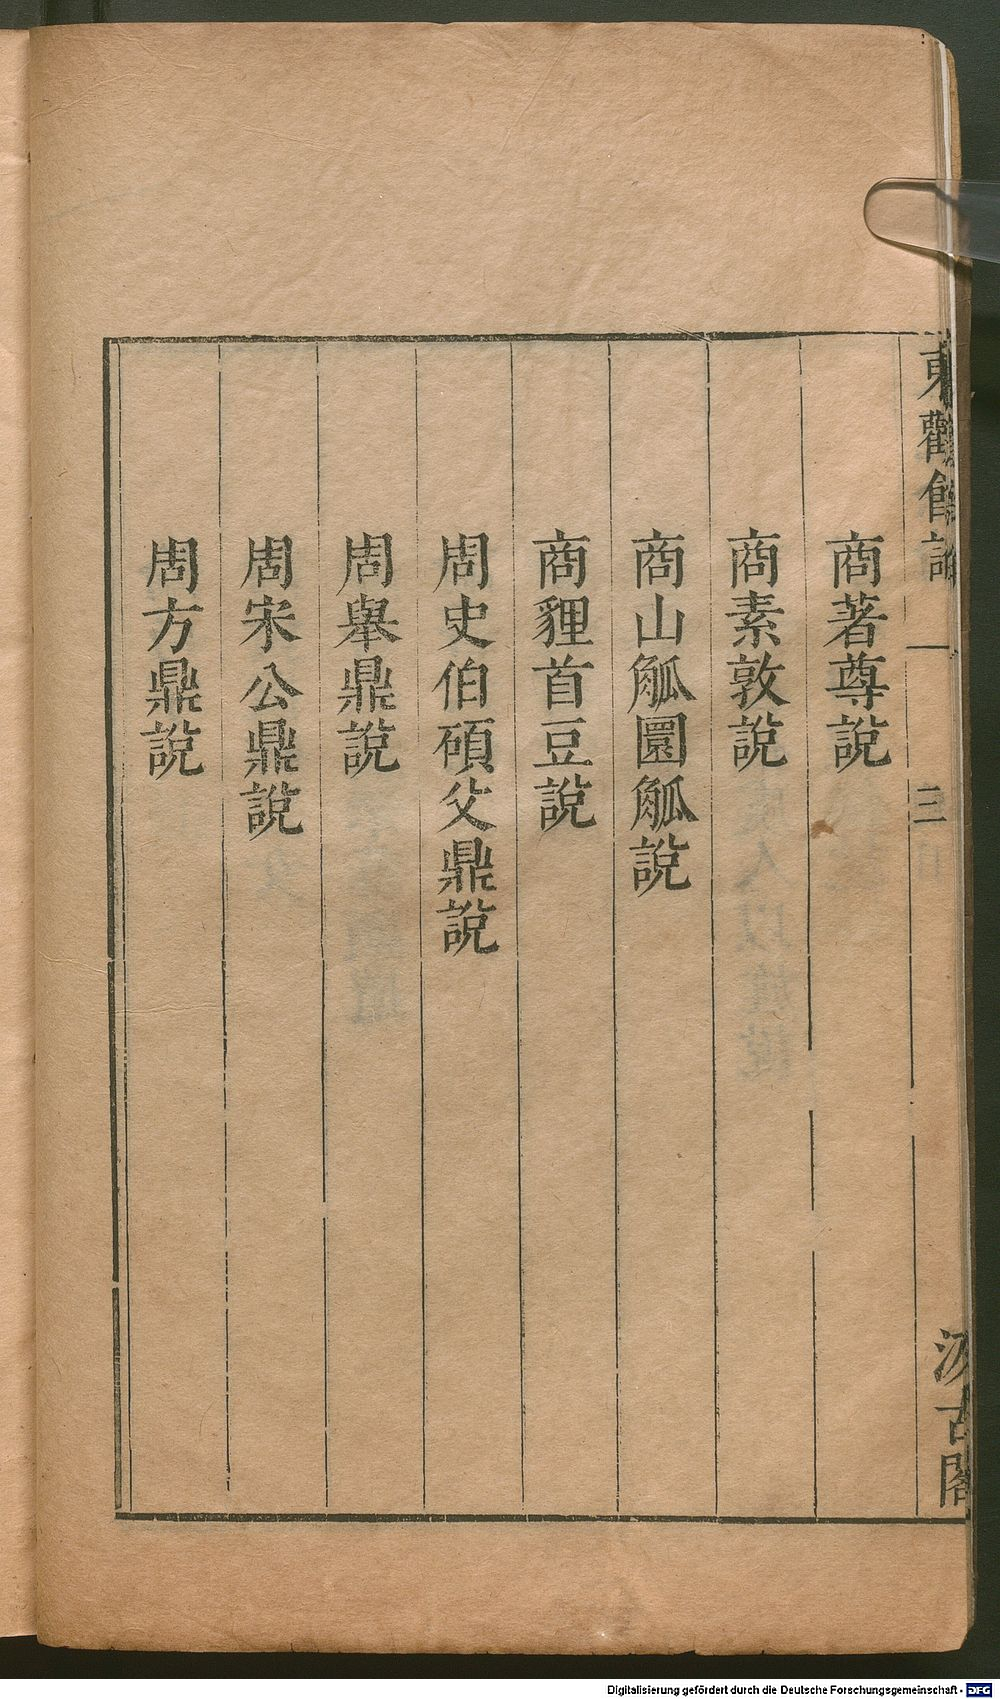 東觀餘論
一
三
汲古閣
商著尊說
商素敦說
商山觚圜觚說
商貍首豆說
周史伯碩父鼎說
周舉鼎說
周宋公鼎說
周方鼎說
Digitalisierung gefördert durch die Deutsche Forschungsgemeinschaft - DFG